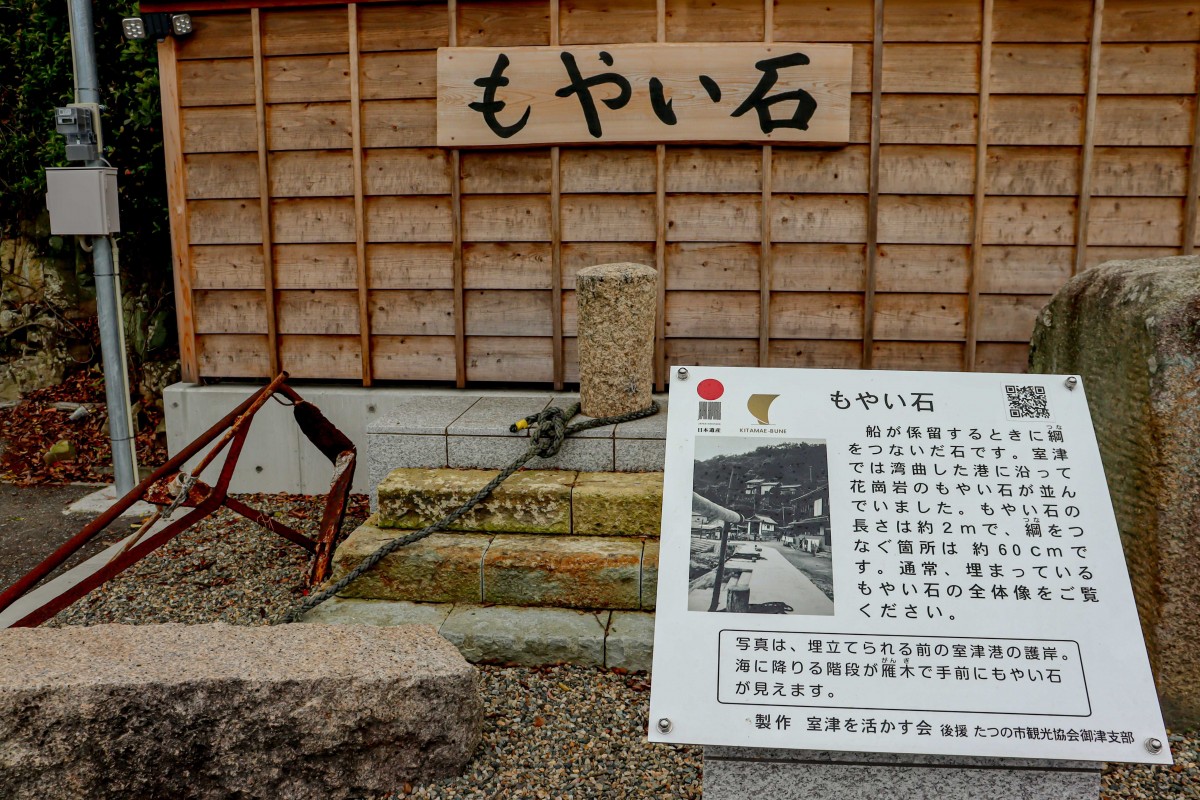 もやい石
日本遺産
KITAMAE-BUNE
もやい石
船が係留するときに綱
つな
をつないだ石です。室津
では湾曲した港に沿って
花崗岩のもやい石が並ん
でいました。もやい石の
長さは約2mで、綱をつ
つな
なぐ箇所は 約60Cmで
す。通常、埋まっている
もやい石の全体像をご覧
ください。
写真は、埋立てられる前の室津港の護岸。
海に降りる階段が雁木で手前にもやい石
がんぎ
が見えます。
製作 室津を活かす会 後援 たつの市観光協会御津支部